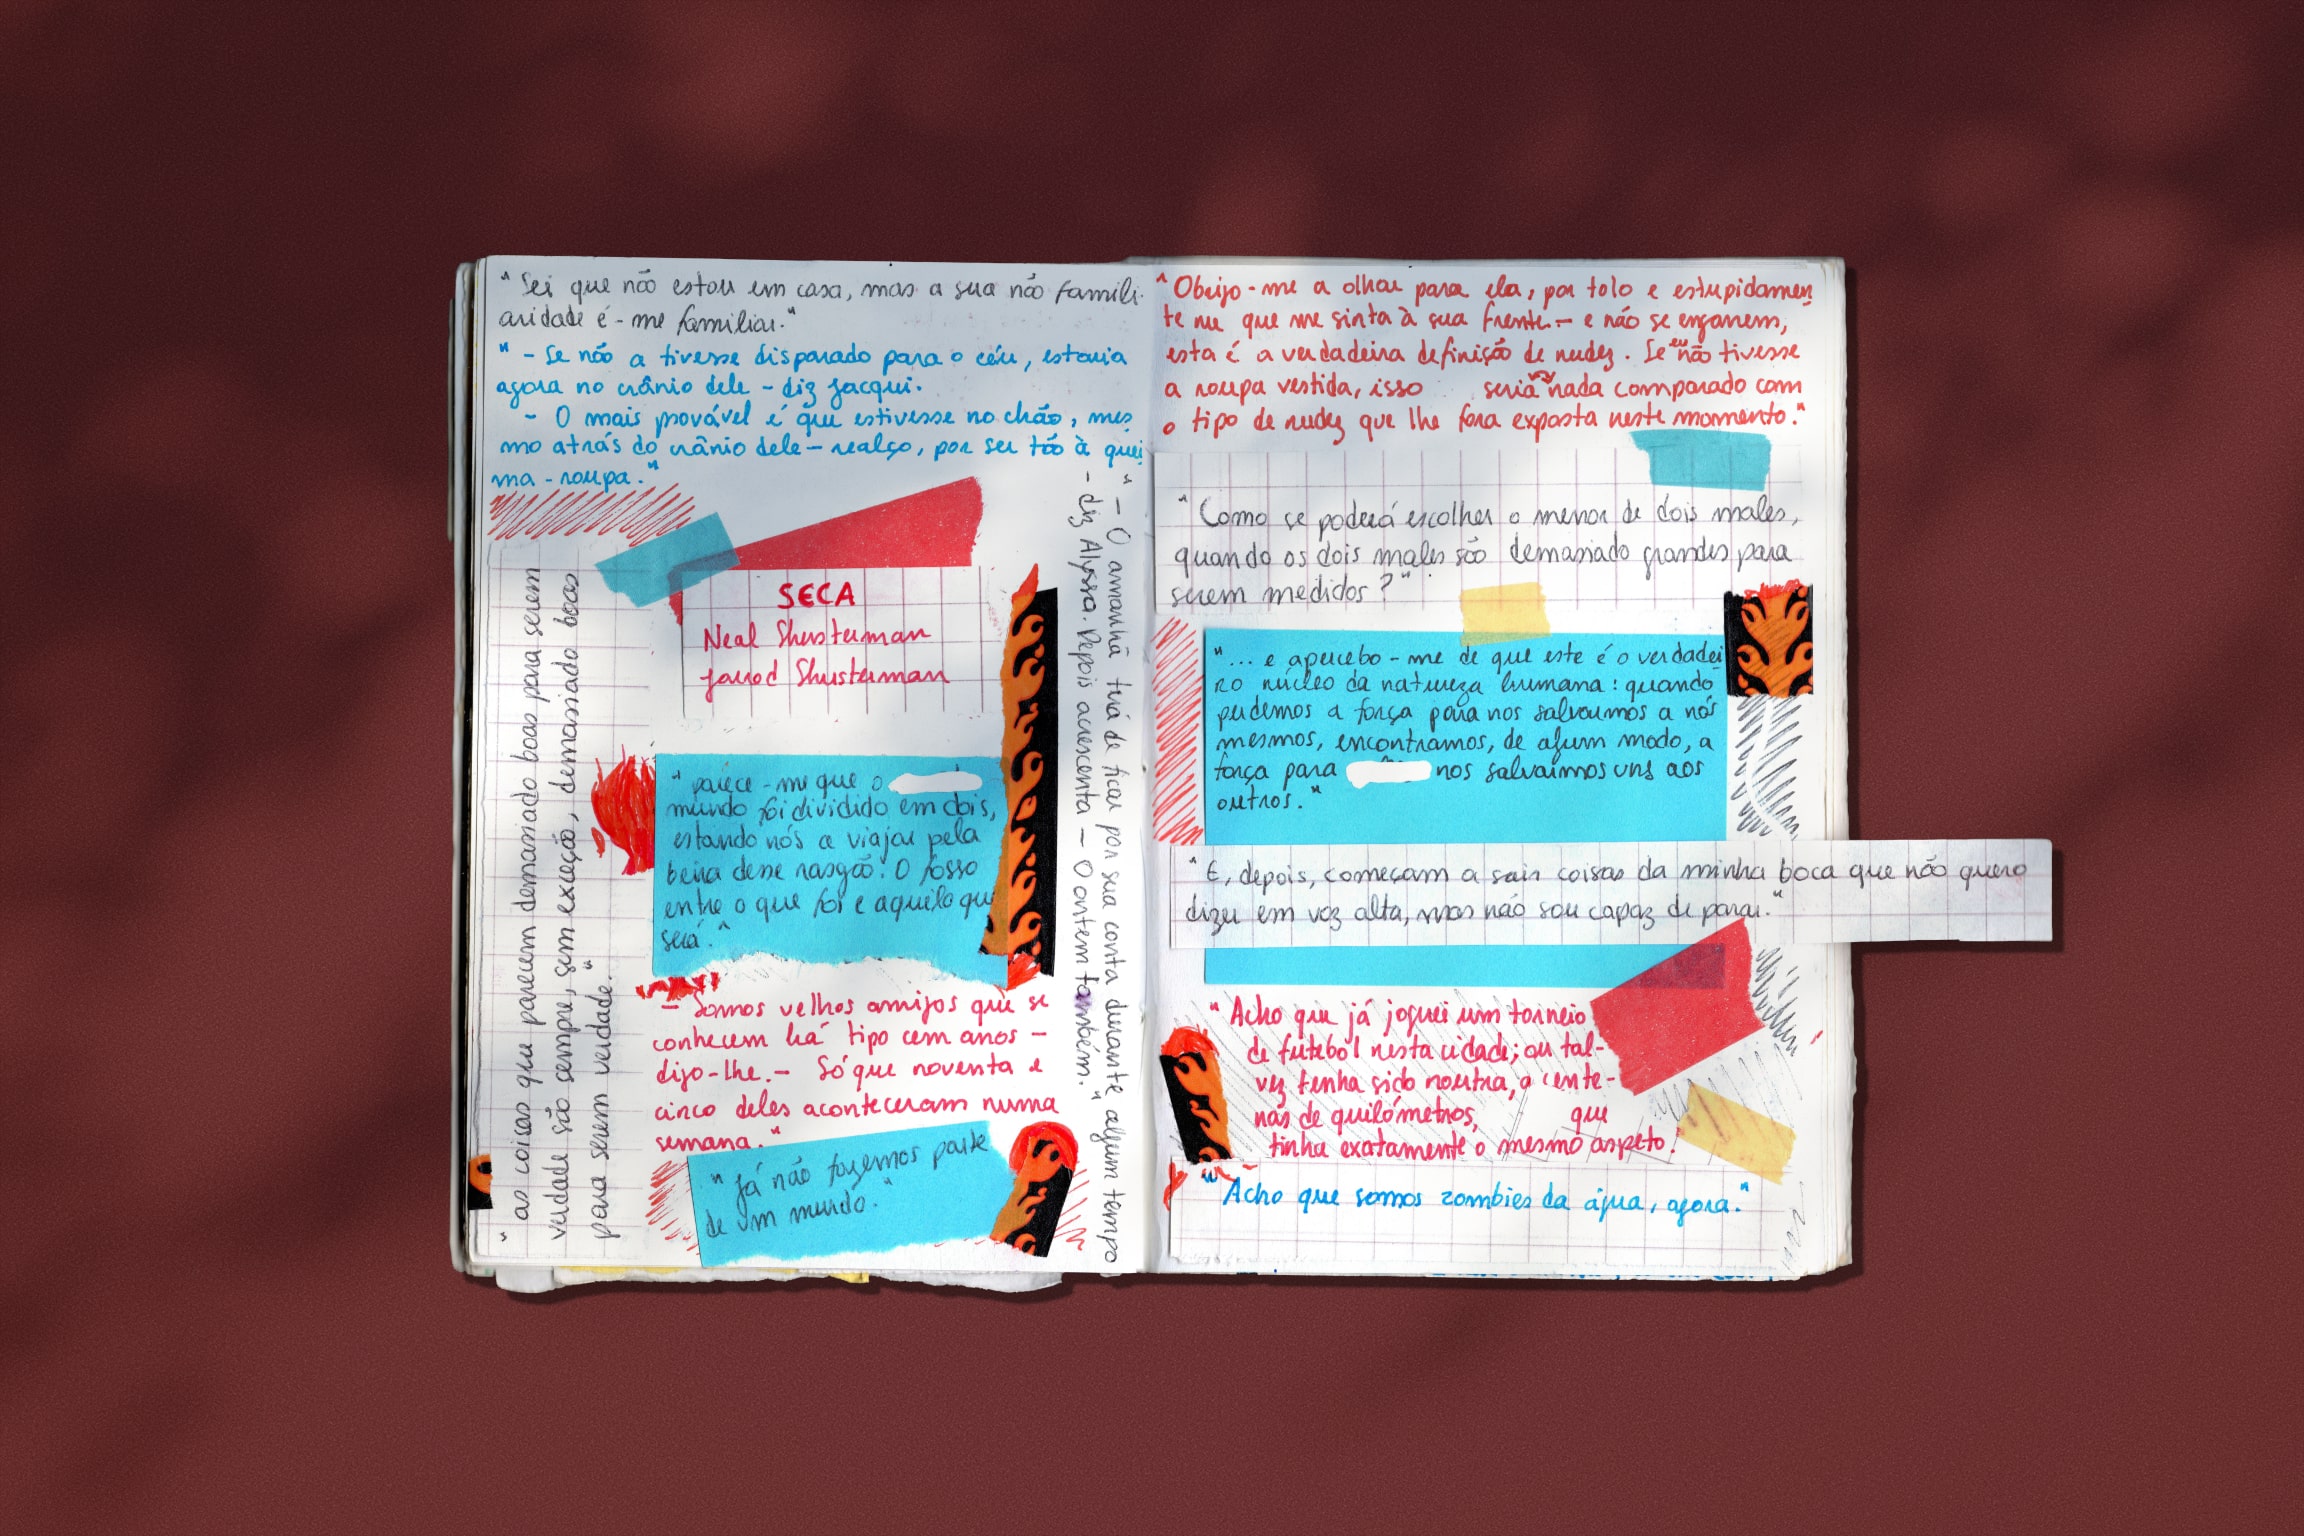 " Sei que não estou em casa, mas a sua não famili-
aridade é-me familiar."
" - Se não a tivesse disparado para o céu, estaria
agora no crânio dele - diz Jacqui.
- O mais provável é que estivesse no chão, mes
mo atrás do crânio dele - realço, por ser tão à quei
ma-roupa."
SECA
Neal Shusterman
Jarrod Shusterman
" as coisas que parecem demasiado boas para serem
verdade são sempre, sem exceção, demasiado boas
para serem verdade."
" parece-me que o
mundo foi dividido em dois,
estando nós a viajar pela
beira desse rasgão. O fosso
entre o que foi e aquilo qu
será."
- Somos velhos amigos que se
conhecem há tipo cem anos -
digo-lhe. - Só que noventa e
cinco deles aconteceram numa
semana."
" Já não fazemos parte
de um mundo."
" - O amanhã terá de ficar por sua conta durante algum tempo
- diz Alyssa. Depois acrescenta - O ontem também."
" Obrigo-me a olhar para ela, por tolo e estupidamen
te nu que me sinta à sua frente - e não se enganem,
esta é a verdadeira definição de nudez. Se eu não tivesse
a roupa vestida, isso seria nada comparado com
o tipo de nudez que lhe fora exposta neste momento."
" Como se poderá escolher o menor de dois males,
quando os dois males são demasiado grandes para
serem medidos?"
"... e apercebo-me de que este é o verdadei
ro núcleo da natureza humana: quando
perdemos a força para nos salvarmos a nós
mesmos, encontramos, de algum modo, a
força para nos salvarmos uns aos
outros."
" E, depois, começam a sair coisas da minha boca que não quero
dizer em voz alta, mas não sou capaz de parar."
" Acho que já joguei um torneio
de futebol nesta cidade; ou tal-
vez tenha sido noutra, a cente-
nas de quilómetros, que
tinha exatamente o mesmo aspeto."
" Acho que somos zombies da água, agora."